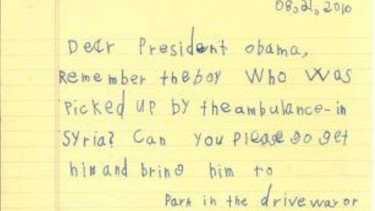 08,21,2010
Dear President obama,
Remember the boy Who was
Picked up by the ambulance-in
Syria? Can you Please go get
him and bring him to
Park in the driveway or